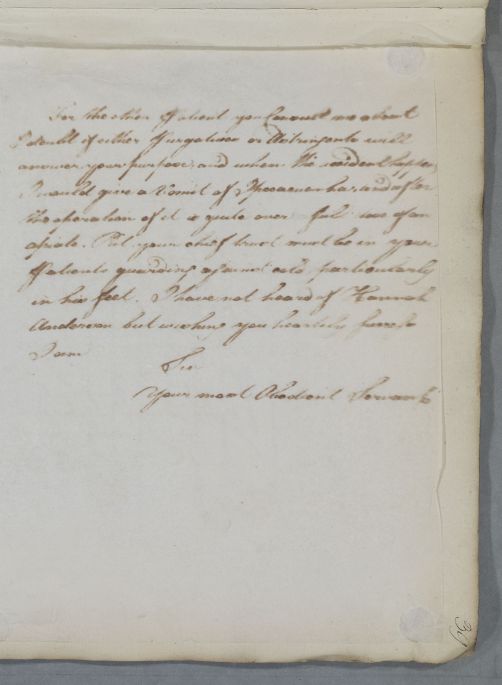 For the other Patient you consult me about
I doubt if either Purgatives or Astringents will
answer your purpose, and when the accident happens
I would give a Vomit of Ipecacuanha, and after
the operation of it is quite over full use of an
opiate. But your chief trust must be in your
Patients guarding against cold, particularly
in his feet. I have not heard of Hannah
Anderson but wishing you heartily
I am
Sir
Your most Obedient Servant